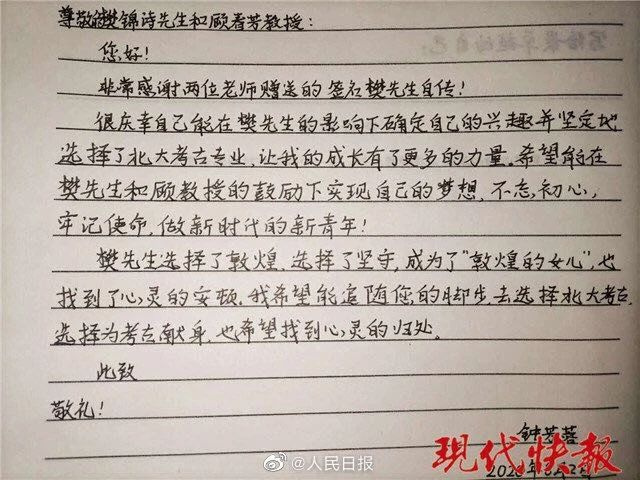 尊敬的樊锦诗先生和顾春芳教授：
您好！
非常感谢两位老师赠送的签名樊先生自传！
很庆幸自己能在樊先生的影响下确定自己的兴趣并坚定地
选择了北大考古专业，让我的成长有了更多的力量。希望能在
樊先生和顾教授的鼓励下实现自己的梦想，不忘初心，
牢记使命，做新时代的新青年！
樊先生选择了敦煌，选择了坚守，成为了“敦煌的女儿”，也
找到了心灵的安顿。我希望能追随您的脚步，去选择北大考古，
选择为考古献身，也希望找到心灵的归处。
此致
敬礼！
钟芳蓉
现代快报
@人民日报